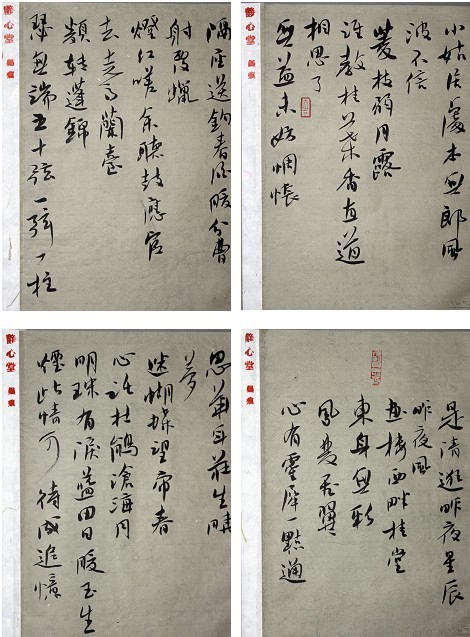 小姑居處本無郎風
波不信
菱枝弱月露
誰教桂葉香直道
相思了
無益未妨惆悵
靜心堂
是清逛昨夜星辰
昨夜風
畫樓西畔桂堂
東身無彩
鳳雙飛翼
心有靈犀一點通
靜心堂
隔座送鈎春酒暖分曹
射覆蠟
燈紅嗟余聽鼓應官
去走馬蘭臺
類轉蓬錦
瑟無端五十弦一弦一柱
靜心堂
思華年莊生曉
夢
迷蝴蝶望帝春
心託杜鵑滄海月
明珠有淚藍田日暖玉生
煙此情可待成追憶
靜心堂